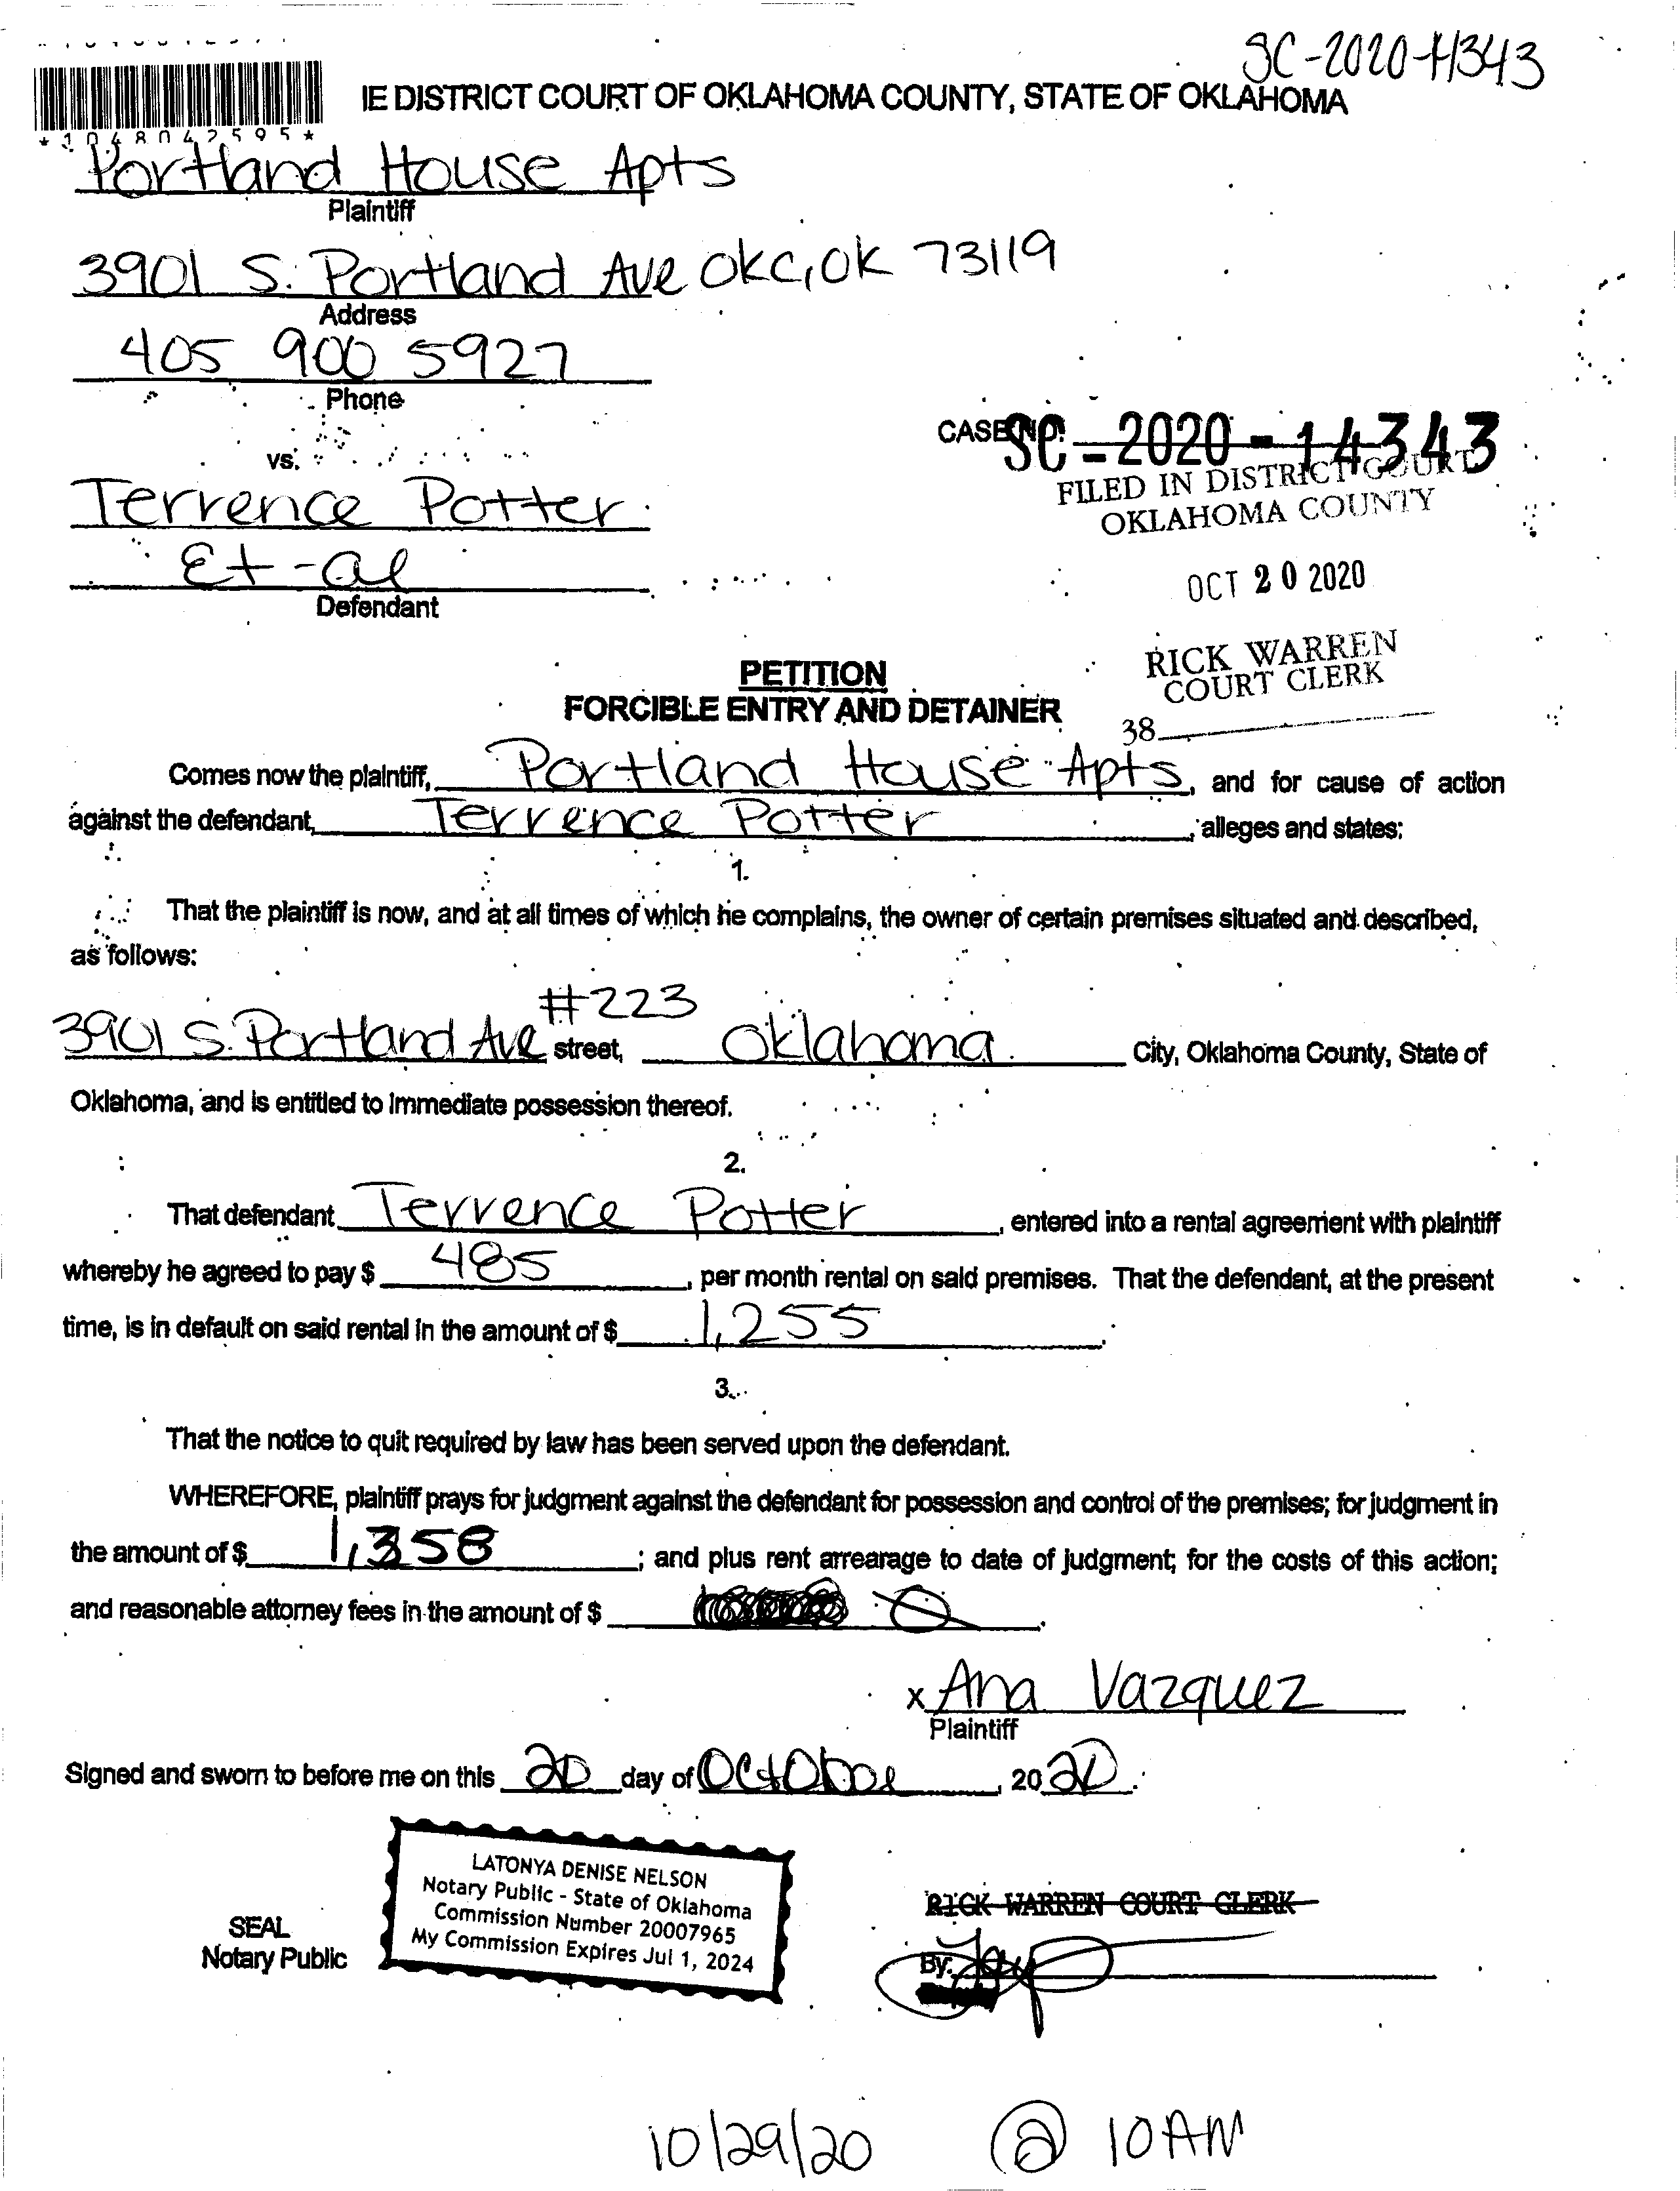 SC-2020-14343
IE DISTRICT COURT OF OKLAHOMA COUNTY, STATE OF OKLAHOMA
*1048042595*
Portland House Apts
Plaintiff
3901 S. Portland Ave OKC, OK 73119
Address
405 900 5927
Phone
CASE NO. SC-2020-14343
vs.
FILED IN DISTRICT COURT
OKLAHOMA COUNTY
Terrence Potter
Et-al
Defendant
OCT 20 2020
RICK WARREN
COURT CLERK
38
PETITION
FORCIBLE ENTRY AND DETAINER
Comes now the plaintiff, Portland House Apts, and for cause of action
against the defendant, Terrence Potter, alleges and states:
1.
That the plaintiff is now, and at all times of which he complains, the owner of certain premises situated and described,
as follows:
#223
3901 S. Portland Ave street, Oklahoma City, Oklahoma County, State of
Oklahoma, and is entitled to immediate possession thereof.
2.
That defendant Terrence Potter, entered into a rental agreement with plaintiff
whereby he agreed to pay $ 485, per month rental on said premises. That the defendant, at the present
time, is in default on said rental in the amount of $ 1,255.
3.
That the notice to quit required by law has been served upon the defendant.
WHEREFORE, plaintiff prays for judgment against the defendant for possession and control of the premises; for judgment in
the amount of $ 1,358; and plus rent arrearage to date of judgment; for the costs of this action;
and reasonable attorney fees in the amount of $ 0.
x Ana Vazquez
Plaintiff
Signed and sworn to before me on this 20 day of October, 2020.
LATONYA DENISE NELSON
Notary Public - State of Oklahoma
Commission Number 20007965
My Commission Expires Jul 1, 2024
SEAL
Notary Public
RICK WARREN COURT CLERK
By:
10/29/20 @ 10AM